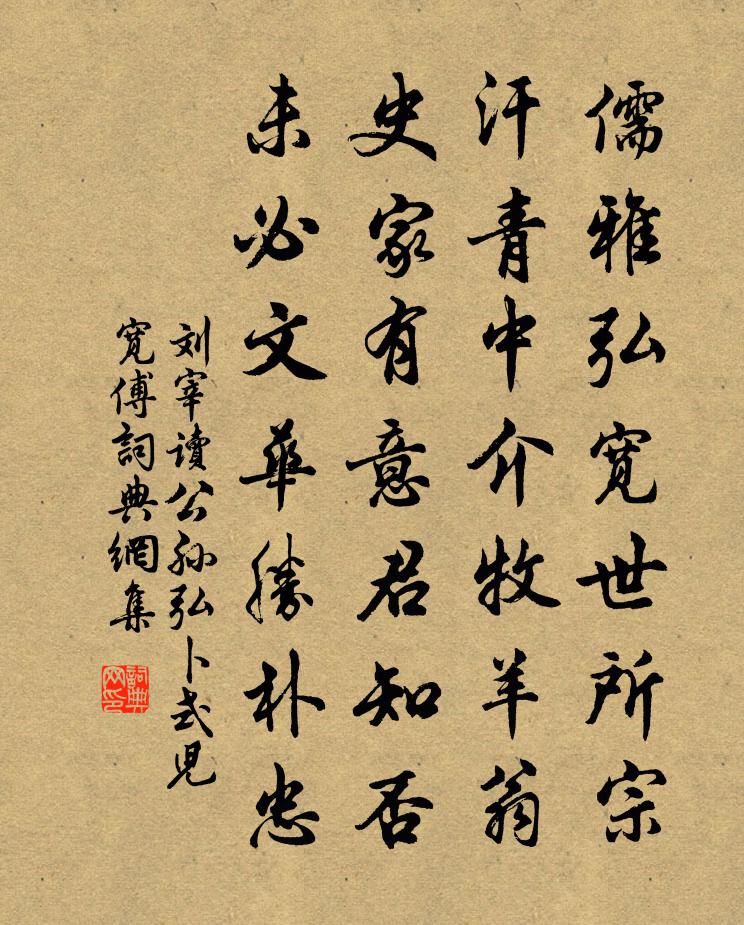 儒雅弘寬世所宗
汗青中介牧羊翁
史家有意君知否
未必文華勝朴忠
刘宰讀公孙弘卜式児
寬傅詞典網集
詞典
网印